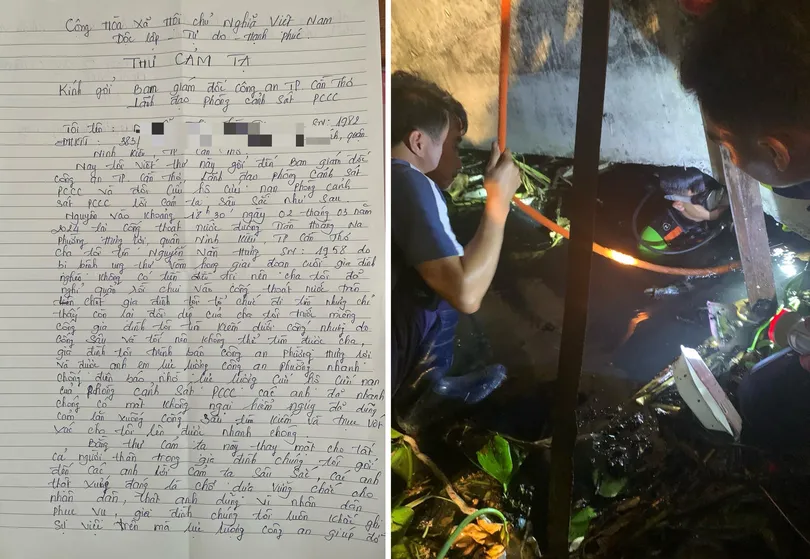 Công Hòa Xã Hội chủ Nghĩa Việt Nam
Độc lập - Tự do - Hạnh phúc
THƯ CẢM TẠ
Kính gởi Bam giám đốc công an TP. Cần Thơ
Lãnh đạo phòng cảnh sát PCCC
Tôi tên : SN: 1982
383/ quận
Ninh Kiều, TP Cần Thơ
Nay tôi viết thư này gởi đến Bam giám đốc
công an TP. Cần Thơ, Lãnh đạo Phòng Cảnh Sát
PCCC và đội Cứu hộ Cứu nạn phòng cảnh
sát PCCC lời cảm tạ sâu sắc như sau
Nguyên vào khoảng 30 ngày 02 tháng 03 năm
2024 tại cống thoát nước đường Trần Hoàng Na
Phường Hưng lợi, quận Ninh Kiều, TP Cần Thơ
Cha tôi tên Nguyễn Văn Hưng SN: 1958 do
bị bệnh ung thư vòm họng giai đoạn cuối gia đình
nghèo không có tiền điều trị nên cha tôi đã
nghỉ quẩn rồi chui vào cống thoát nước trầm
chết gia đình tôi tổ chức đi tìm nhưng chỉ
thấy còn lại đôi dép của cha tôi trước miệng
cống gia đình tôi tìm kiếm dưới cống nhưng do
cống sâu và tối nên không thể tìm được cha,
gia đình tôi trình báo công an phường hưng lợi
và được anh em lực lượng công an phường nhanh
chống điện báo nhờ lực lượng cứu hộ cứu nạn
của phòng cảnh sát PCCC các anh đã nhanh
chống có mặt không ngại hiểm nguy đã dũng
cảm lặn xuống cống sâu tìm kiếm và truc vớt
xác cho tôi lên được nhanh chống
Bằng thư cảm tạ này thay mặt cho tất
cả người thân trong gia đình chúng tôi gởi
đến các anh lời cảm tạ sâu sắc, các anh
thật xứng đáng là chổ dựa vững chắc cho
nhân dân, thật anh dũng vì nhân dân
phục vụ, gia đình chúng tôi luôn khắc ghi
sự việc trên mà lực lượng công an giúp đỡ